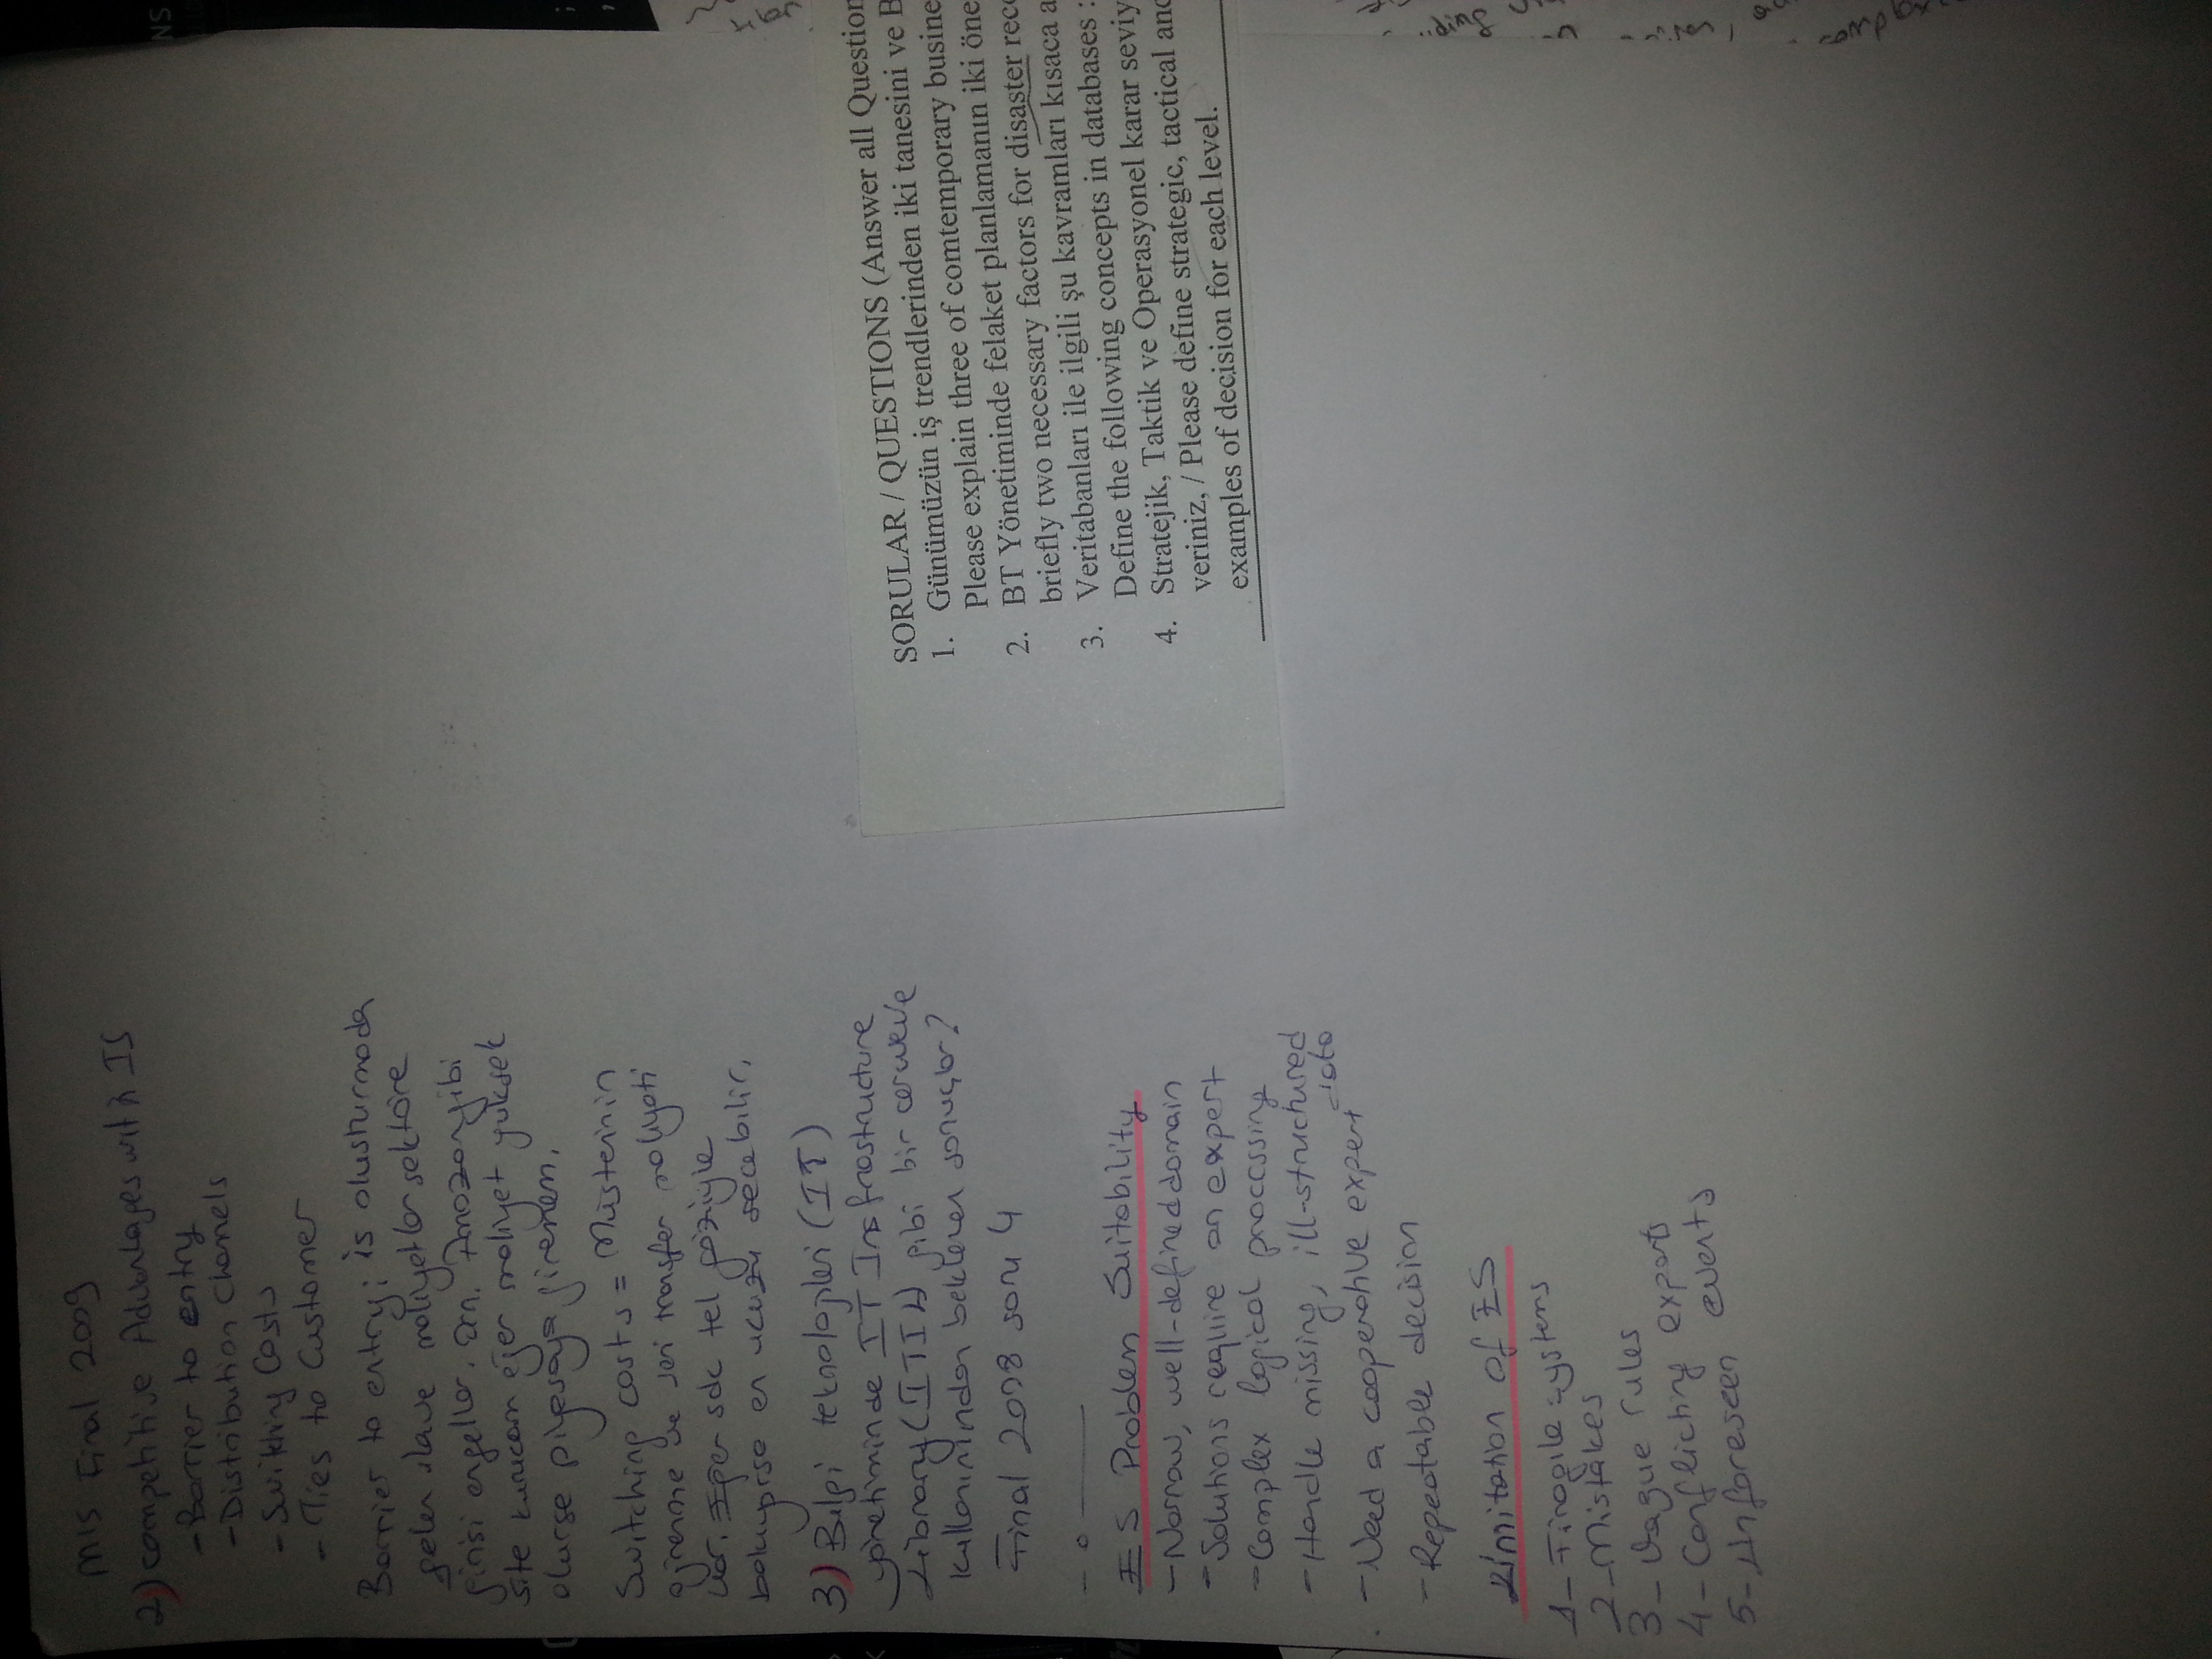 MIS Final 2009
2) Competitive Advantages with IS
- Barrier to entry
- Distribution channels
- Switching Costs
- Ties to Customer
Barrier to entry: is olusturmada
gelen ilave maliyetler sektöre
girisi engeller. Örn. Amazon gibi
site kurucam eğer maliyet yüksek
olursa piyasaya giremem.
Switching costs = Müsterinin
öğrenme ve veri transfer maliyeti
var. Eğer sdc tel gözüyle
bakıyorsa en ucuzu secebilir.
3) Bilgi teknolojileri (IT)
yönetiminde IT Infrastructure
Library (ITIL) gibi bir cerceve
kullanımından beklenen sonuçlar?
Final 2008 soru 4
ES Problem Suitability
- Narrow, well-defined domain
- Solutions require an expert
- Complex logical processing
- Handle missing, ill-structured
data
- Need a cooperative expert
- Repeatable decision
Limitation of ES
1- Fragile systems
2- Mistakes
3- Vague rules
4- Conflicting experts
5- Unforeseen events
SORULAR / QUESTIONS (Answer all Question
1. Günümüzün iş trendlerinden iki tanesini ve B
Please explain three of comtemporary busine
2. BT Yönetiminde felaket planlamanın iki öne
briefly two necessary factors for disaster reco
3. Veritabanları ile ilgili şu kavramları kısaca a
Define the following concepts in databases :
4. Stratejik, Taktik ve Operasyonel karar seviy
veriniz, / Please define strategic, tactical and
examples of decision for each level.